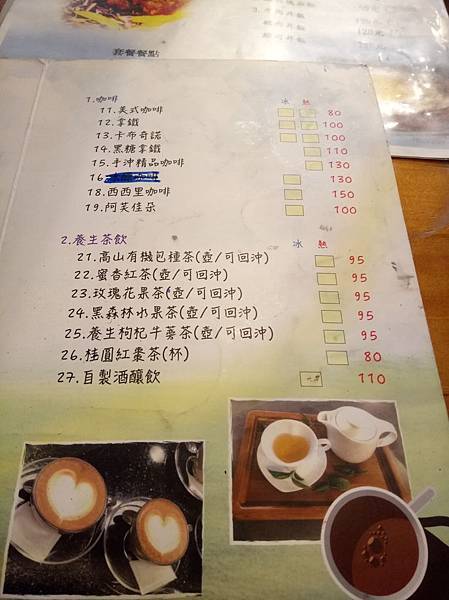 套餐餐點
1.咖啡 冰 熱
11.美式咖啡 80
12.拿鐵 100
13.卡布奇諾 100
14.黑糖拿鐵 110
15.手沖精品咖啡 130
16. 130
18.西西里咖啡 150
19.阿芙佳朵 100
2.養生茶飲 冰 熱
21.高山有機包種茶(壺/可回沖) 95
22.蜜香紅茶(壺/可回沖) 95
23.玫瑰花果茶(壺/可回沖) 95
24.黑森林水果茶(壺/可回沖) 95
25.養生枸杞牛蒡茶(壺/可回沖) 95
26.桂圓紅棗茶(杯) 80
27.自製酒釀飲 110